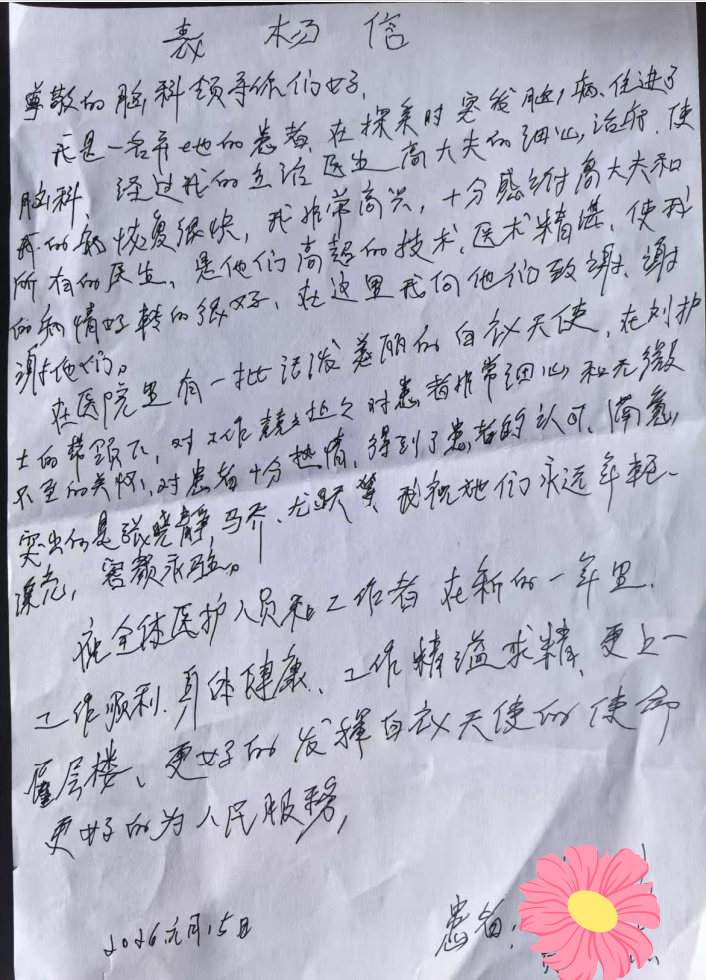 表 杨 信
尊敬的脑科领导你们好,
我是一名市地的患者,在探亲时突发脑病,住进了
脑科、经过我的主治医生高大夫的细心治疗,使
我的病恢复很快,我非常高兴,十分感谢付高大夫和
所有的医生,是他们高超的技术,医术精湛,使我
的病情好转的很好,在这里我向他们致谢,谢
谢他们。
在医院里有一批活泼美丽的白衣天使,在刘护
士的带领下,对工作兢兢业业对患者非常细心和无微
不至的关怀,对患者十分热情,得到了患者的认可、满意,
突出的是张晓静,马乔、尤跃 我祝她们永远年轻、
漂亮,容颜永驻。
祝全体医护人员和工作者在新的一年里.
工作顺利.身体健康、工作精益求精、更上一
层楼、更好的发挥白衣天使的使命
更好的为人民服务,
患者:
2026元月15日